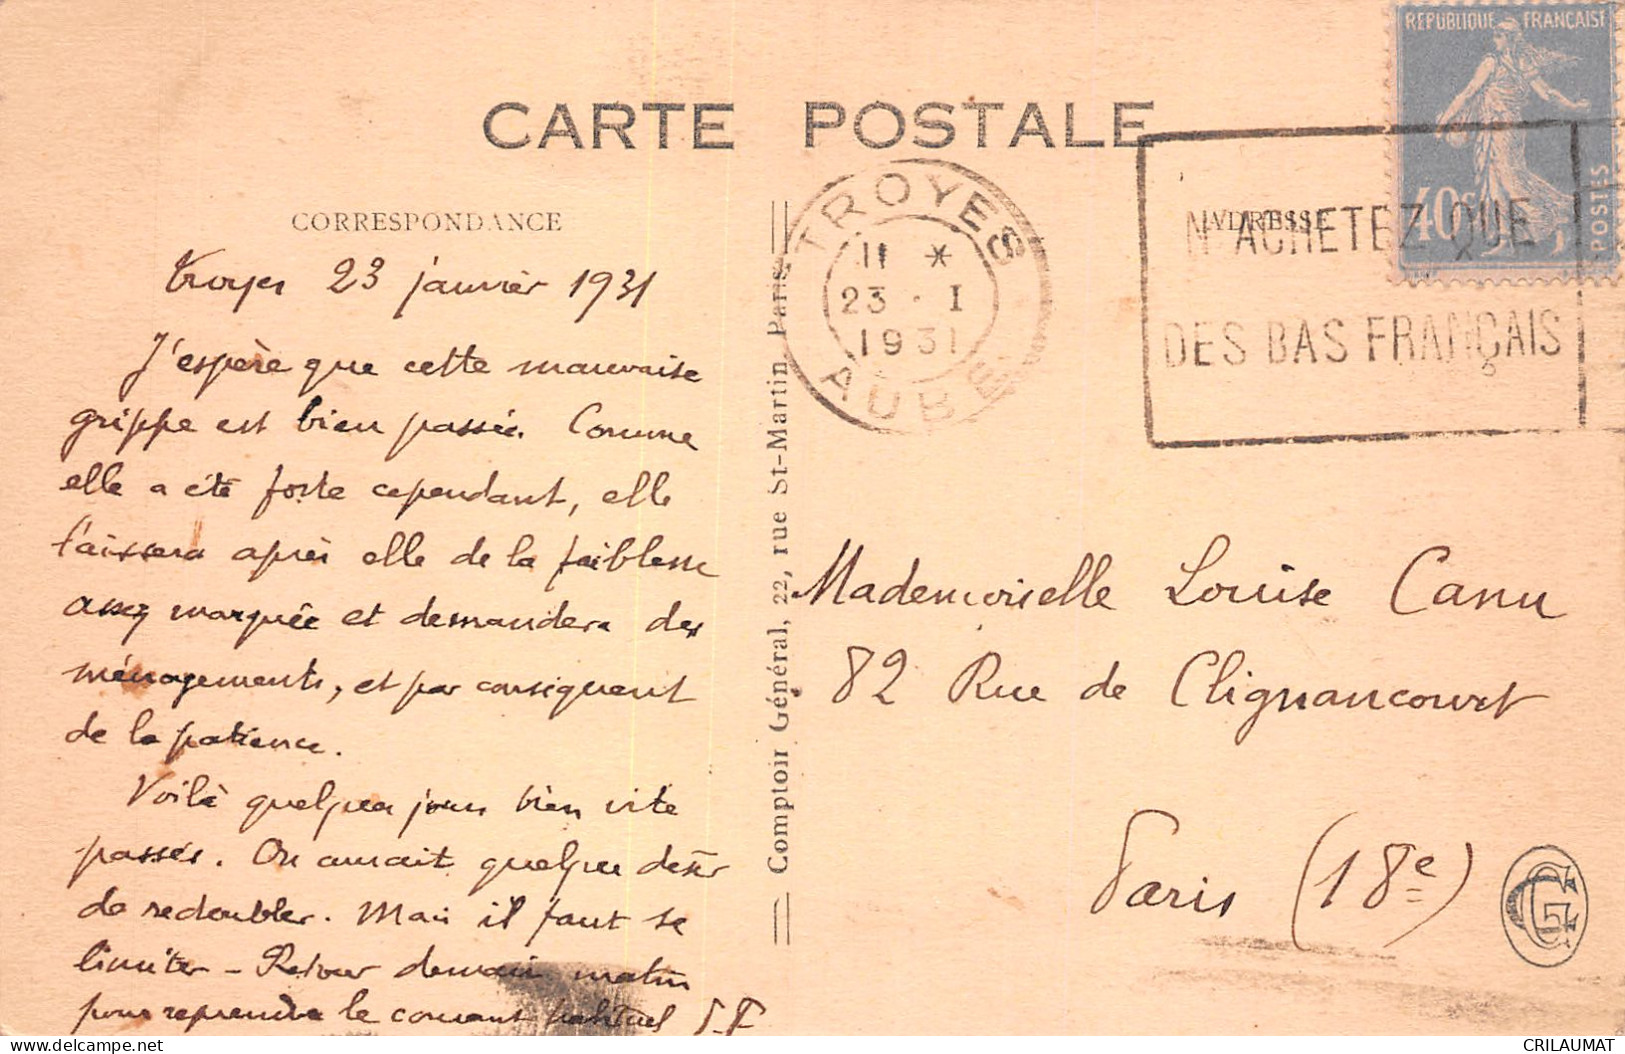 CARTE POSTALE
CORRESPONDANCE
ADRESSE
REPUBLIQUE FRANÇAISE
40c
POSTES
TROYES
11 *
23 . I
1931
AUBE
N'ACHETEZ QUE
DES BAS FRANÇAIS
Troyes 23 janvier 1931
J'espère que cette mauvaise
grippe est bien passée. Comme
elle a été forte cependant, elle
laissera après elle de la faiblesse
assez marquée et demandera des
ménagements, et par conséquent
de la patience.
Voilà quelques jours bien vite
passés. On aurait quelque désir
de redoubler. Mais il faut se
limiter - Retour demain matin
pour reprendre le courant habituel
Comptoir Général, 22, rue St-Martin Paris
Mademoiselle Louise Canu
82 Rue de Clignancourt
Paris (18e)
CRILAUMAT
delcampe.net